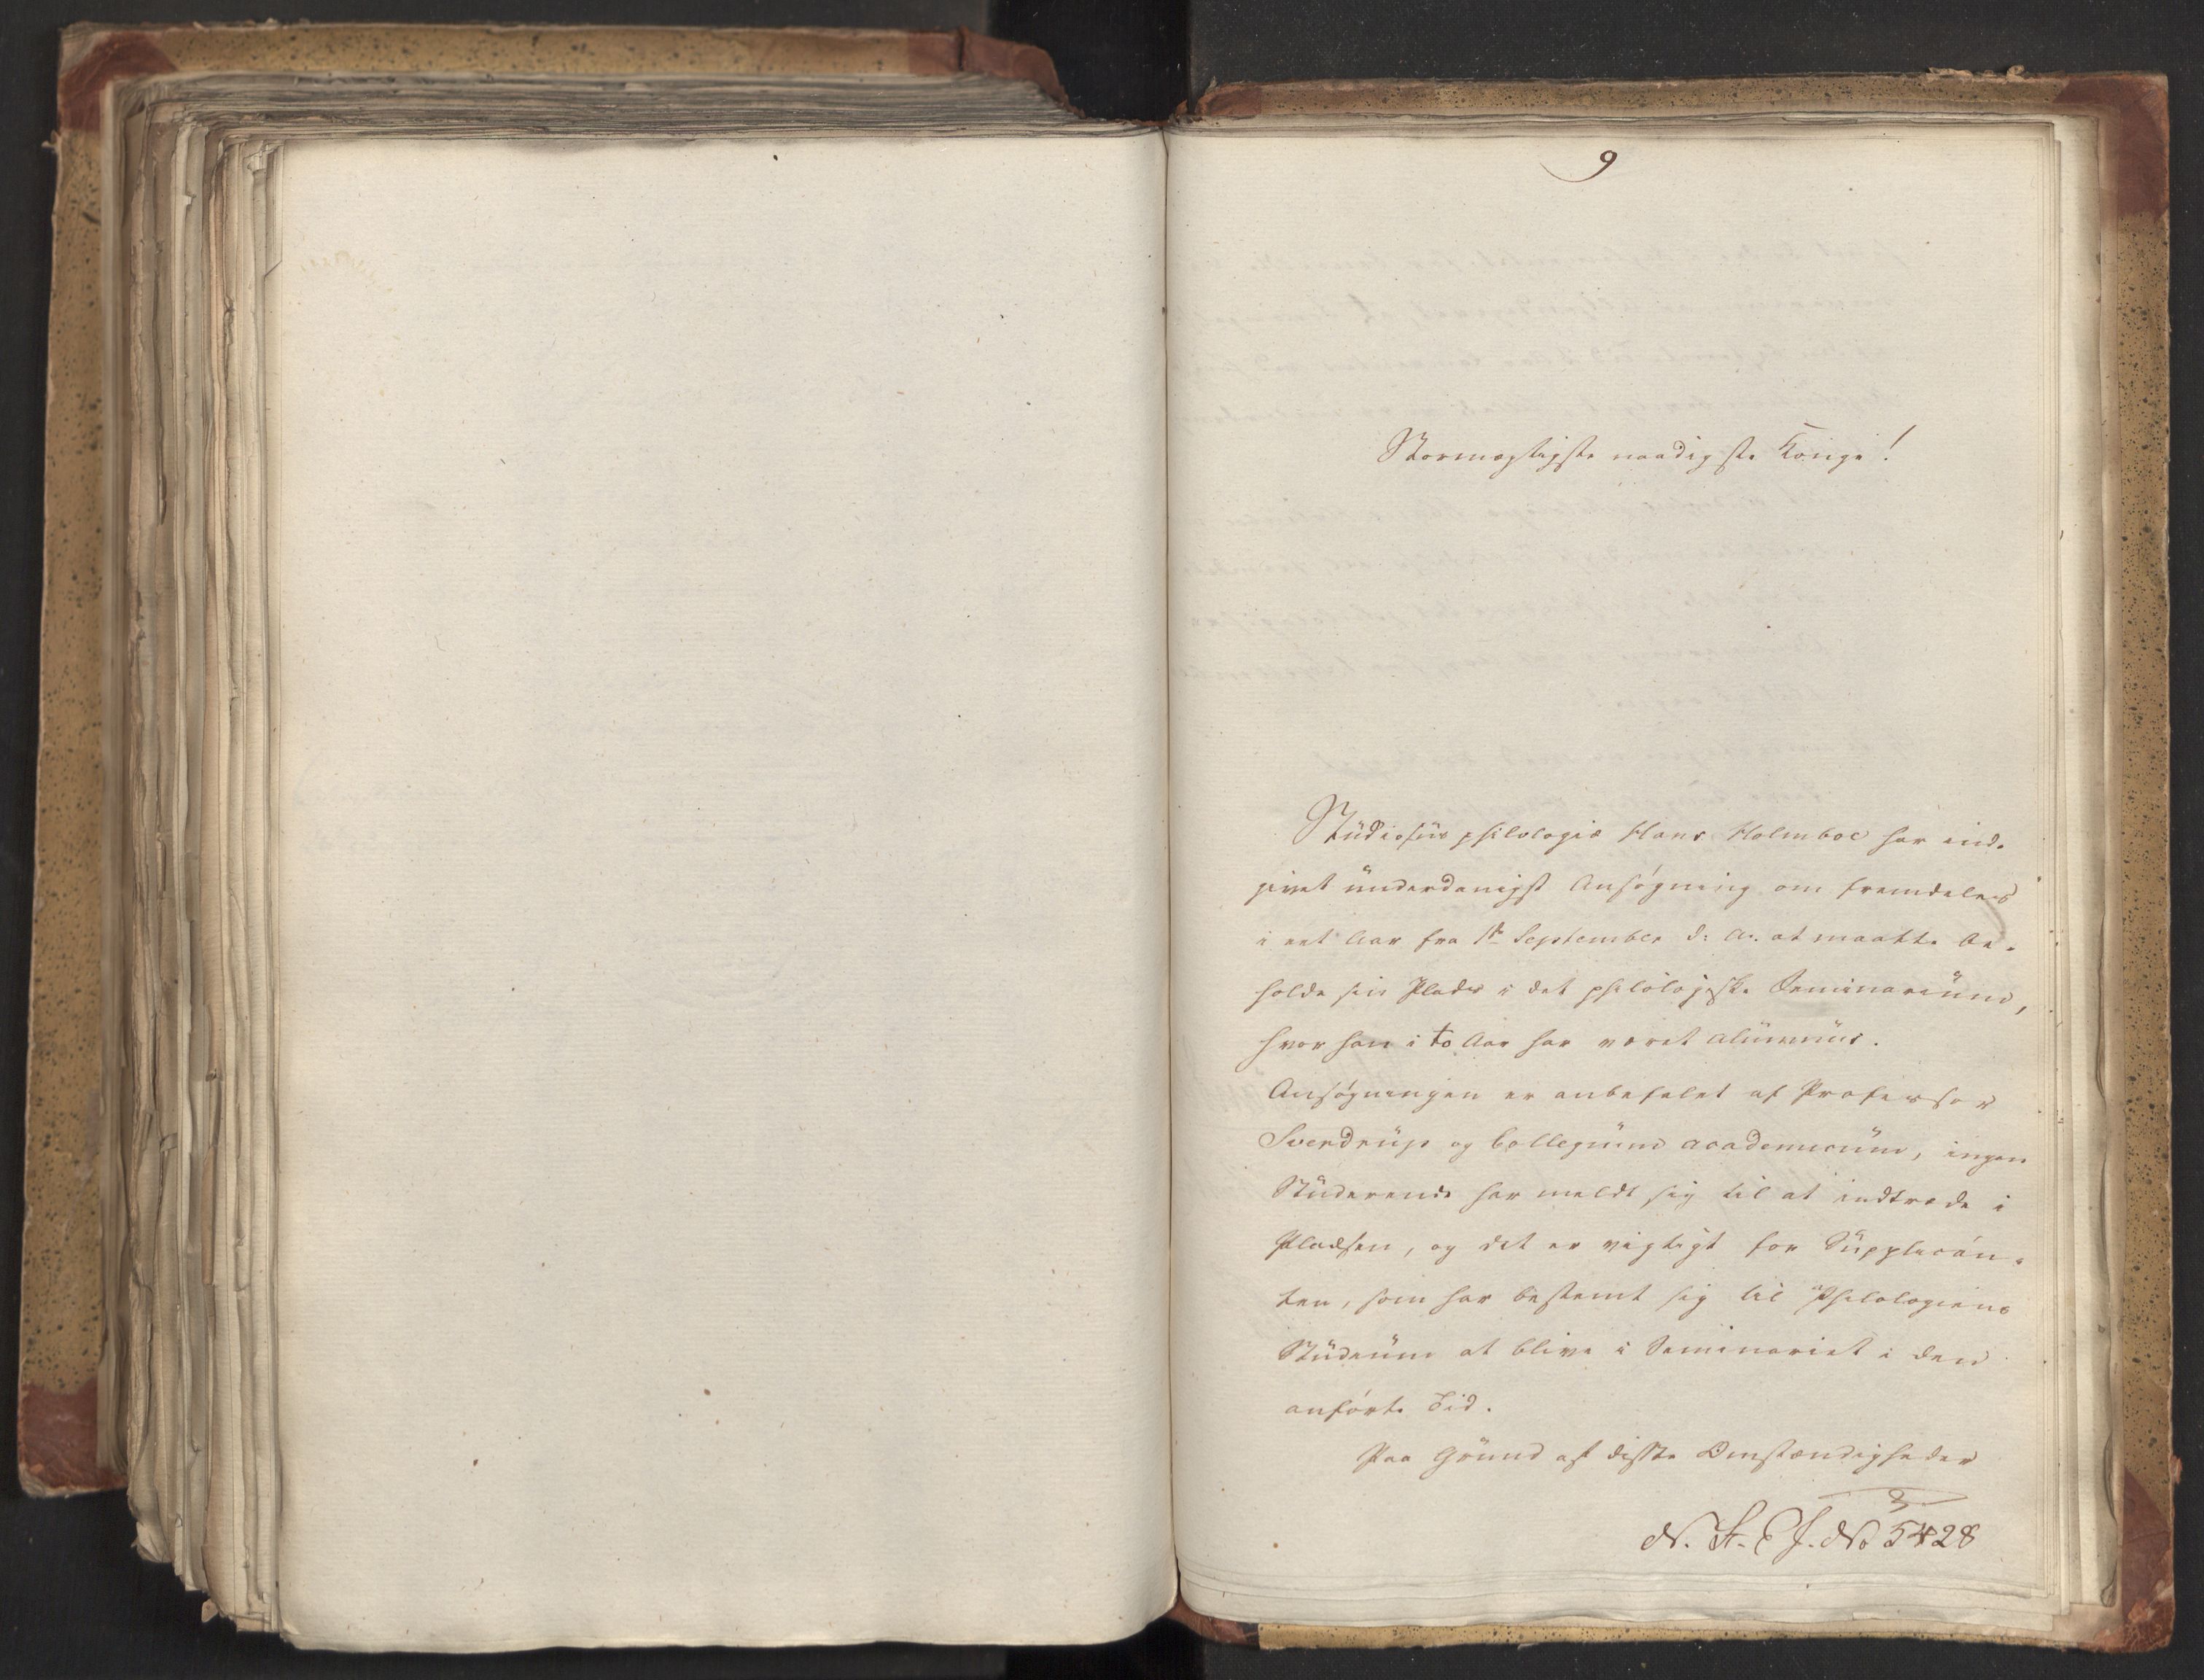 9
Stormægtigste naadigste Konge!
Studiosus philologiæ Hans Holmboe har ind-
givet underdanigst Ansøgning om fremdeles
i eet Aar fra 1ste September d: A: at maatte be-
holde sin Plads i det philologiske Seminarium,
hvor han i to Aar har været Alumnus.
Ansøgningen er anbefalet af Professor
Sverdrup og Collegium academicum, ingen
Studerende har meldt sig til at indtræde i
Pladsen, og det er vigtigt for Supplican-
ten, som har bestemt sig til Philologiens
Studium at blive i Seminariet i den
anførte Tid.
Paa Grund af disse Omstændigheder
N. St. E J. No 5428